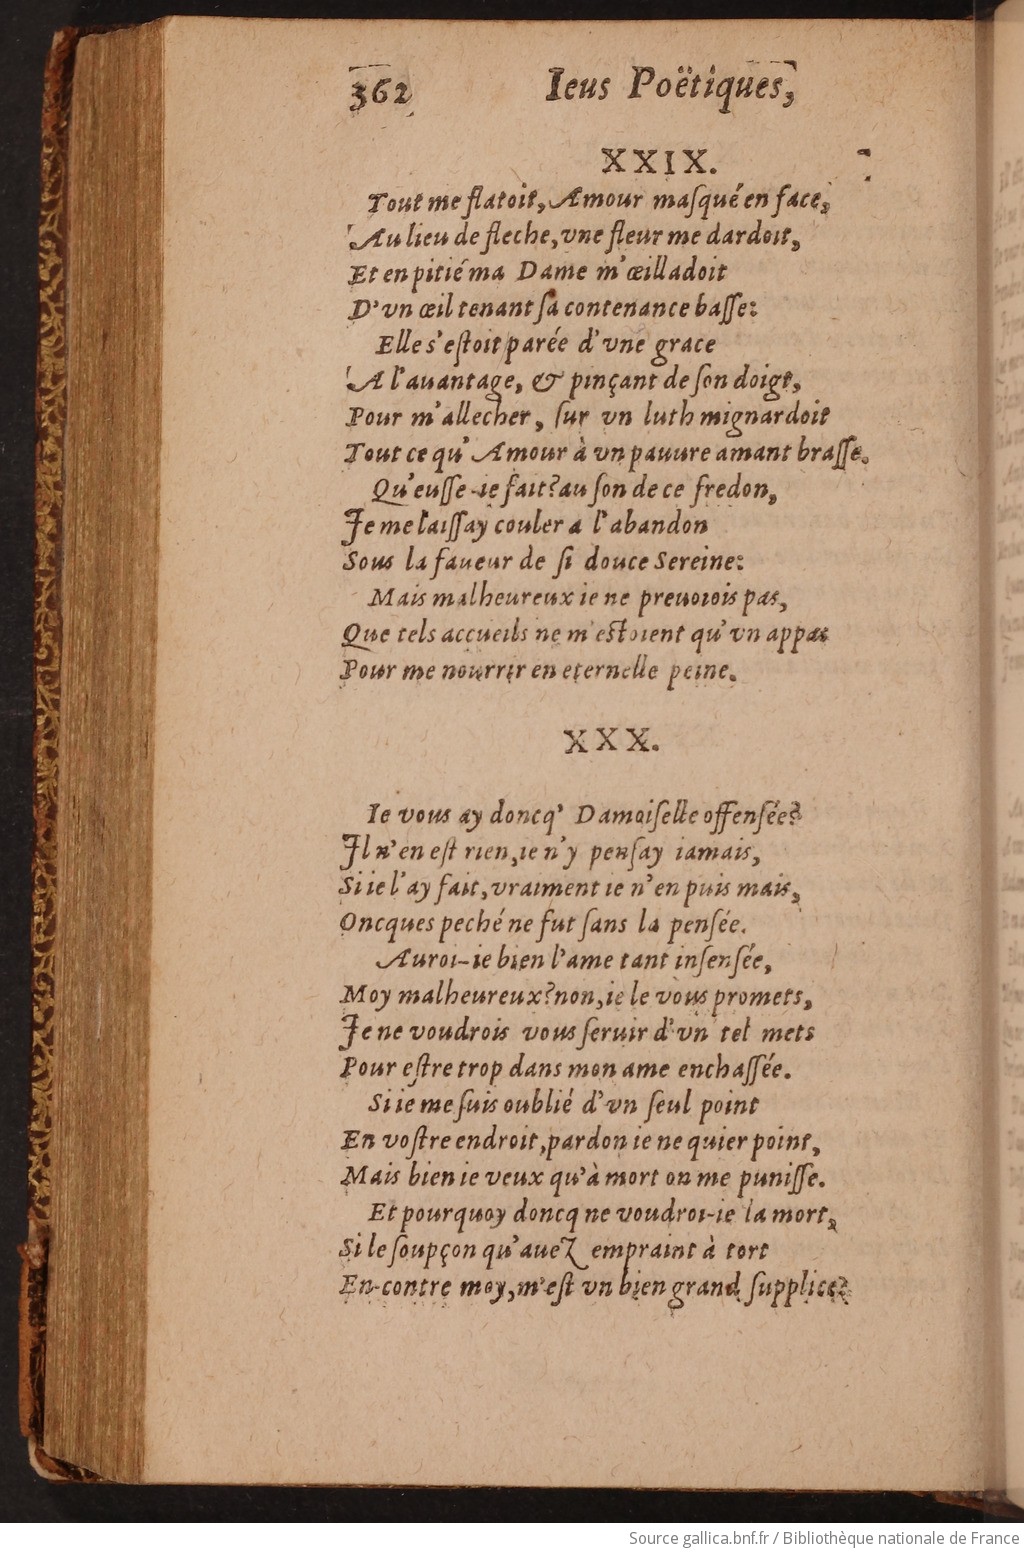 362 Ieus Poëtiques,
XXIX.
Tout me flatoit, Amour maſqué en face,
Au lieu de fleche, vne fleur me dardoit,
Et en pitié ma Dame m'œilladoit
D'vn œil tenant ſa contenance baſſe:
Elle s'eſtoit parée d'vne grace
A l'auantage, & pinçant de ſon doigt,
Pour m'allecher, ſur vn luth mignardoit
Tout ce qu'Amour à vn pauure amant braſſe.
Qu'euſſe-ie fait? au ſon de ce fredon,
Je me laiſſay couler a l'abandon
Sous la faueur de ſi douce Sereine:
Mais malheureux ie ne preuoiois pas,
Que tels accueils ne m'eſtoient qu'vn appas
Pour me nourrir en eternelle peine.
XXX.
Ie vous ay doncq' Damoiſelle offenſée?
Jl n'en eſt rien, ie n'y penſay iamais,
Si ie l'ay fait, vraiment ie n'en puis mais,
Oncques peché ne fut ſans la penſée.
Auroi-ie bien l'ame tant inſenſée,
Moy malheureux? non, ie le vous promets,
Je ne voudrois vous ſeruir d'vn tel mets
Pour eſtre trop dans mon ame enchaſſée.
Si ie me ſuis oublié d'vn ſeul point
En voſtre endroit, pardon ie ne quier point,
Mais bien ie veux qu'à mort on me puniſſe.
Et pourquoy doncq ne voudroi-ie la mort,
Si le ſoupçon qu'auez empraint à tort
En-contre moy, m'eſt vn bien grand ſupplice?
Source gallica.bnf.fr / Bibliothèque nationale de France